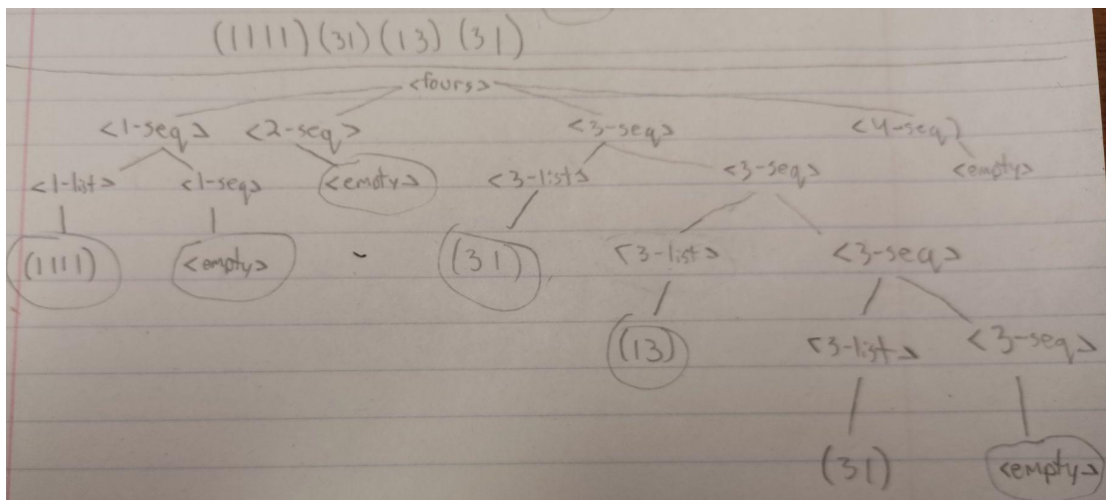 (1111) (31) (13) (31)
<fours>
<1-seq> <2-seq> <3-seq> <4-seq>
<1-list> <1-seq> <empty> <3-list> <3-seq> <empty>
(1111) <empty> - (31) <3-list> <3-seq>
(13) <3-list> <3-seq>
(31) <empty>